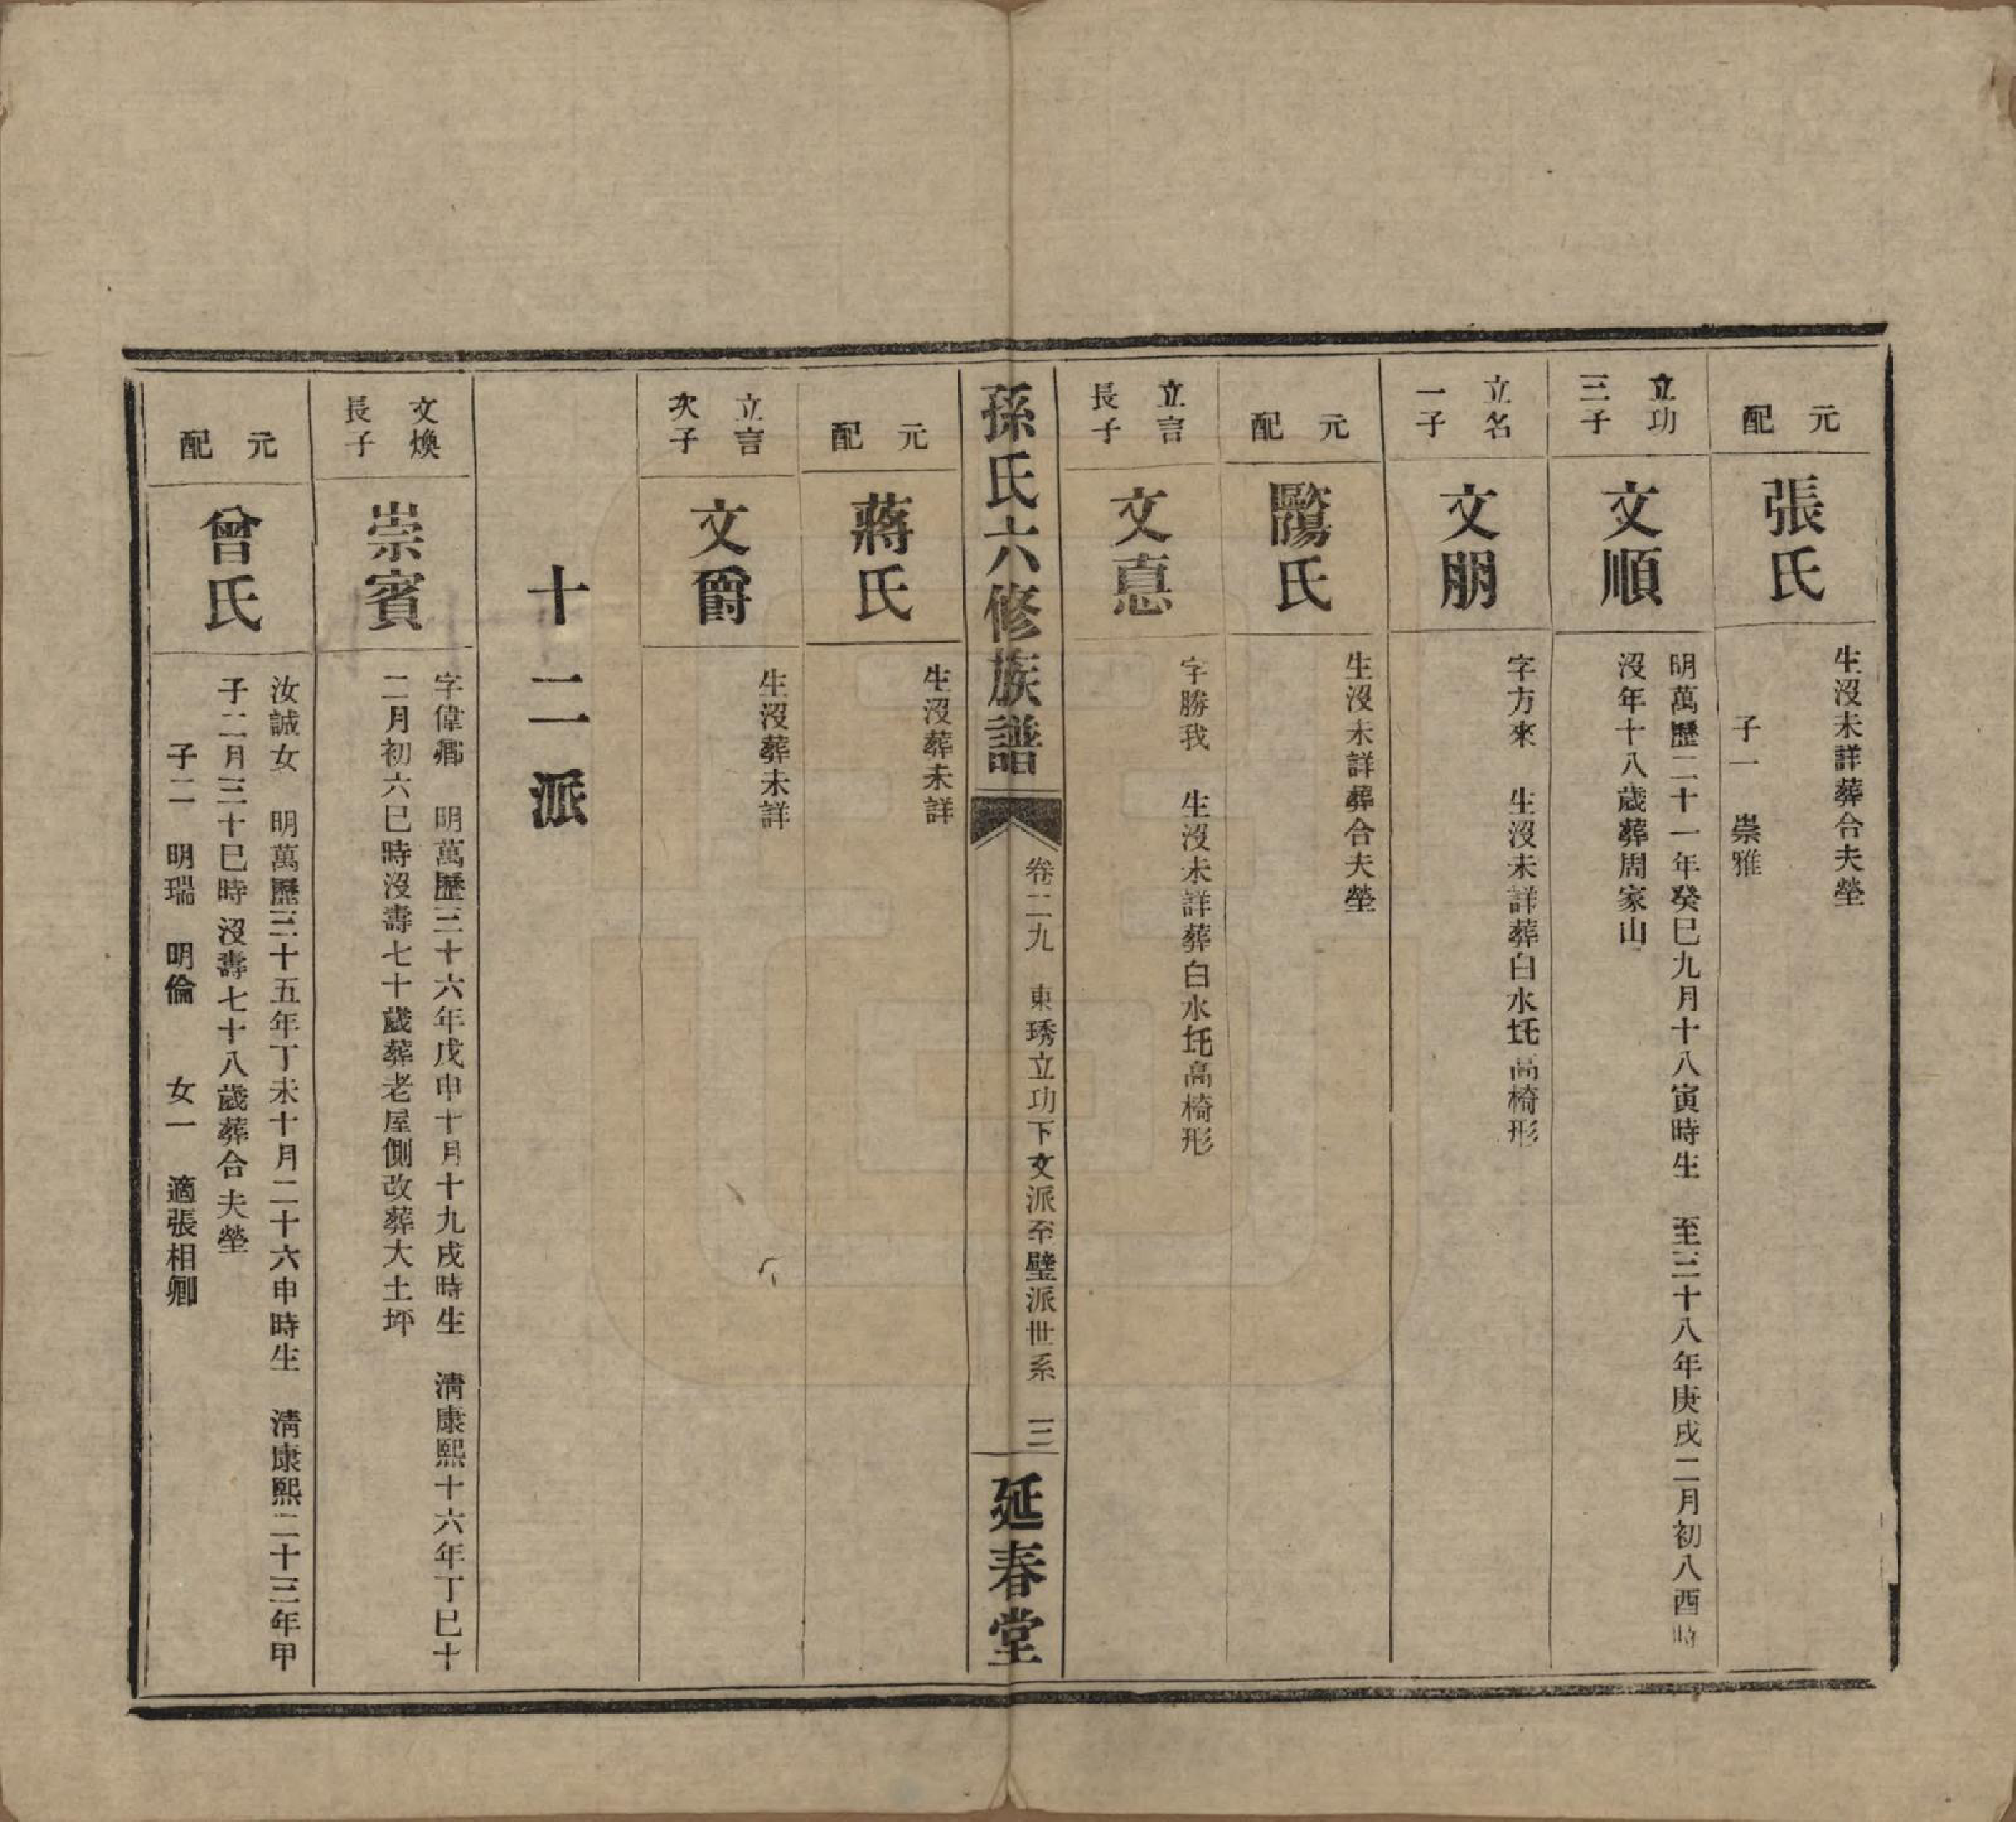 元配
張氏
生沒未詳葬合夫塋
子一　崇雅
立功三子
文順
明萬歷二十一年癸巳九月十八寅時生　至三十八年庚戌二月初八酉時
沒年十八歲葬周家山
立名一子
文朋
字方來　生沒未詳葬白水圫高椅形
元配
陽氏
生沒未詳葬合夫塋
立言長子
文憙
字勝我　生沒未詳葬白水圫高椅形
孫氏六修族譜
卷二九　東琇立功下文派至璧派世系　三
延春堂
元配
蔣氏
生沒葬未詳
立言次子
文爵
生沒葬未詳
十二派
文煥長子
崇賓
字偉鄉　明萬歷三十六年戊申十月十九戌時生　清康熙十六年丁巳十
二月初六巳時沒壽七十歲葬老屋側改葬大土坪
元配
曾氏
汝誠女　明萬歷三十五年丁未十月二十六申時生　清康熙二十三年甲
子二月三十巳時沒壽七十八歲葬合夫塋
子二　明瑞　明倫　女一　適張相卿